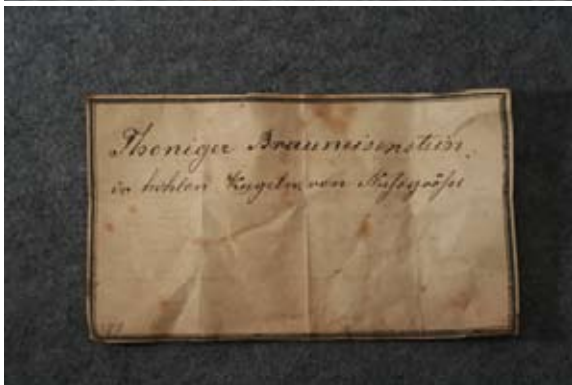 Thoniger Brauneisenstein,
in hohlen Kugeln, von Nußgröße